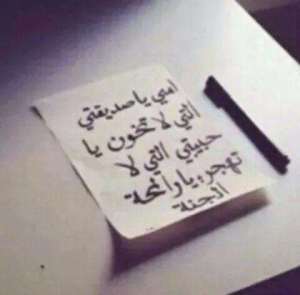 امي ياصديقتي
التي لا تخون يا
حبيبتي التي لا
تهجر، يا رائحة
الجنة